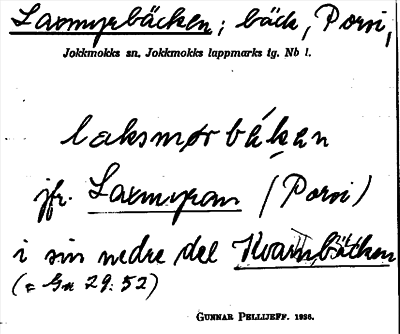 Laxmyrbäcken; bäck, Porsi,
Jokkmokks sn, Jokkmokks lappmarks tg. Nb l.
laksmyrbäken
jfr. Laxmyran (Porsi)
i sin nedre del Kvarnbäcken
(= Gn 29:52)
GUNNAR PELLIJEFF. 1936.